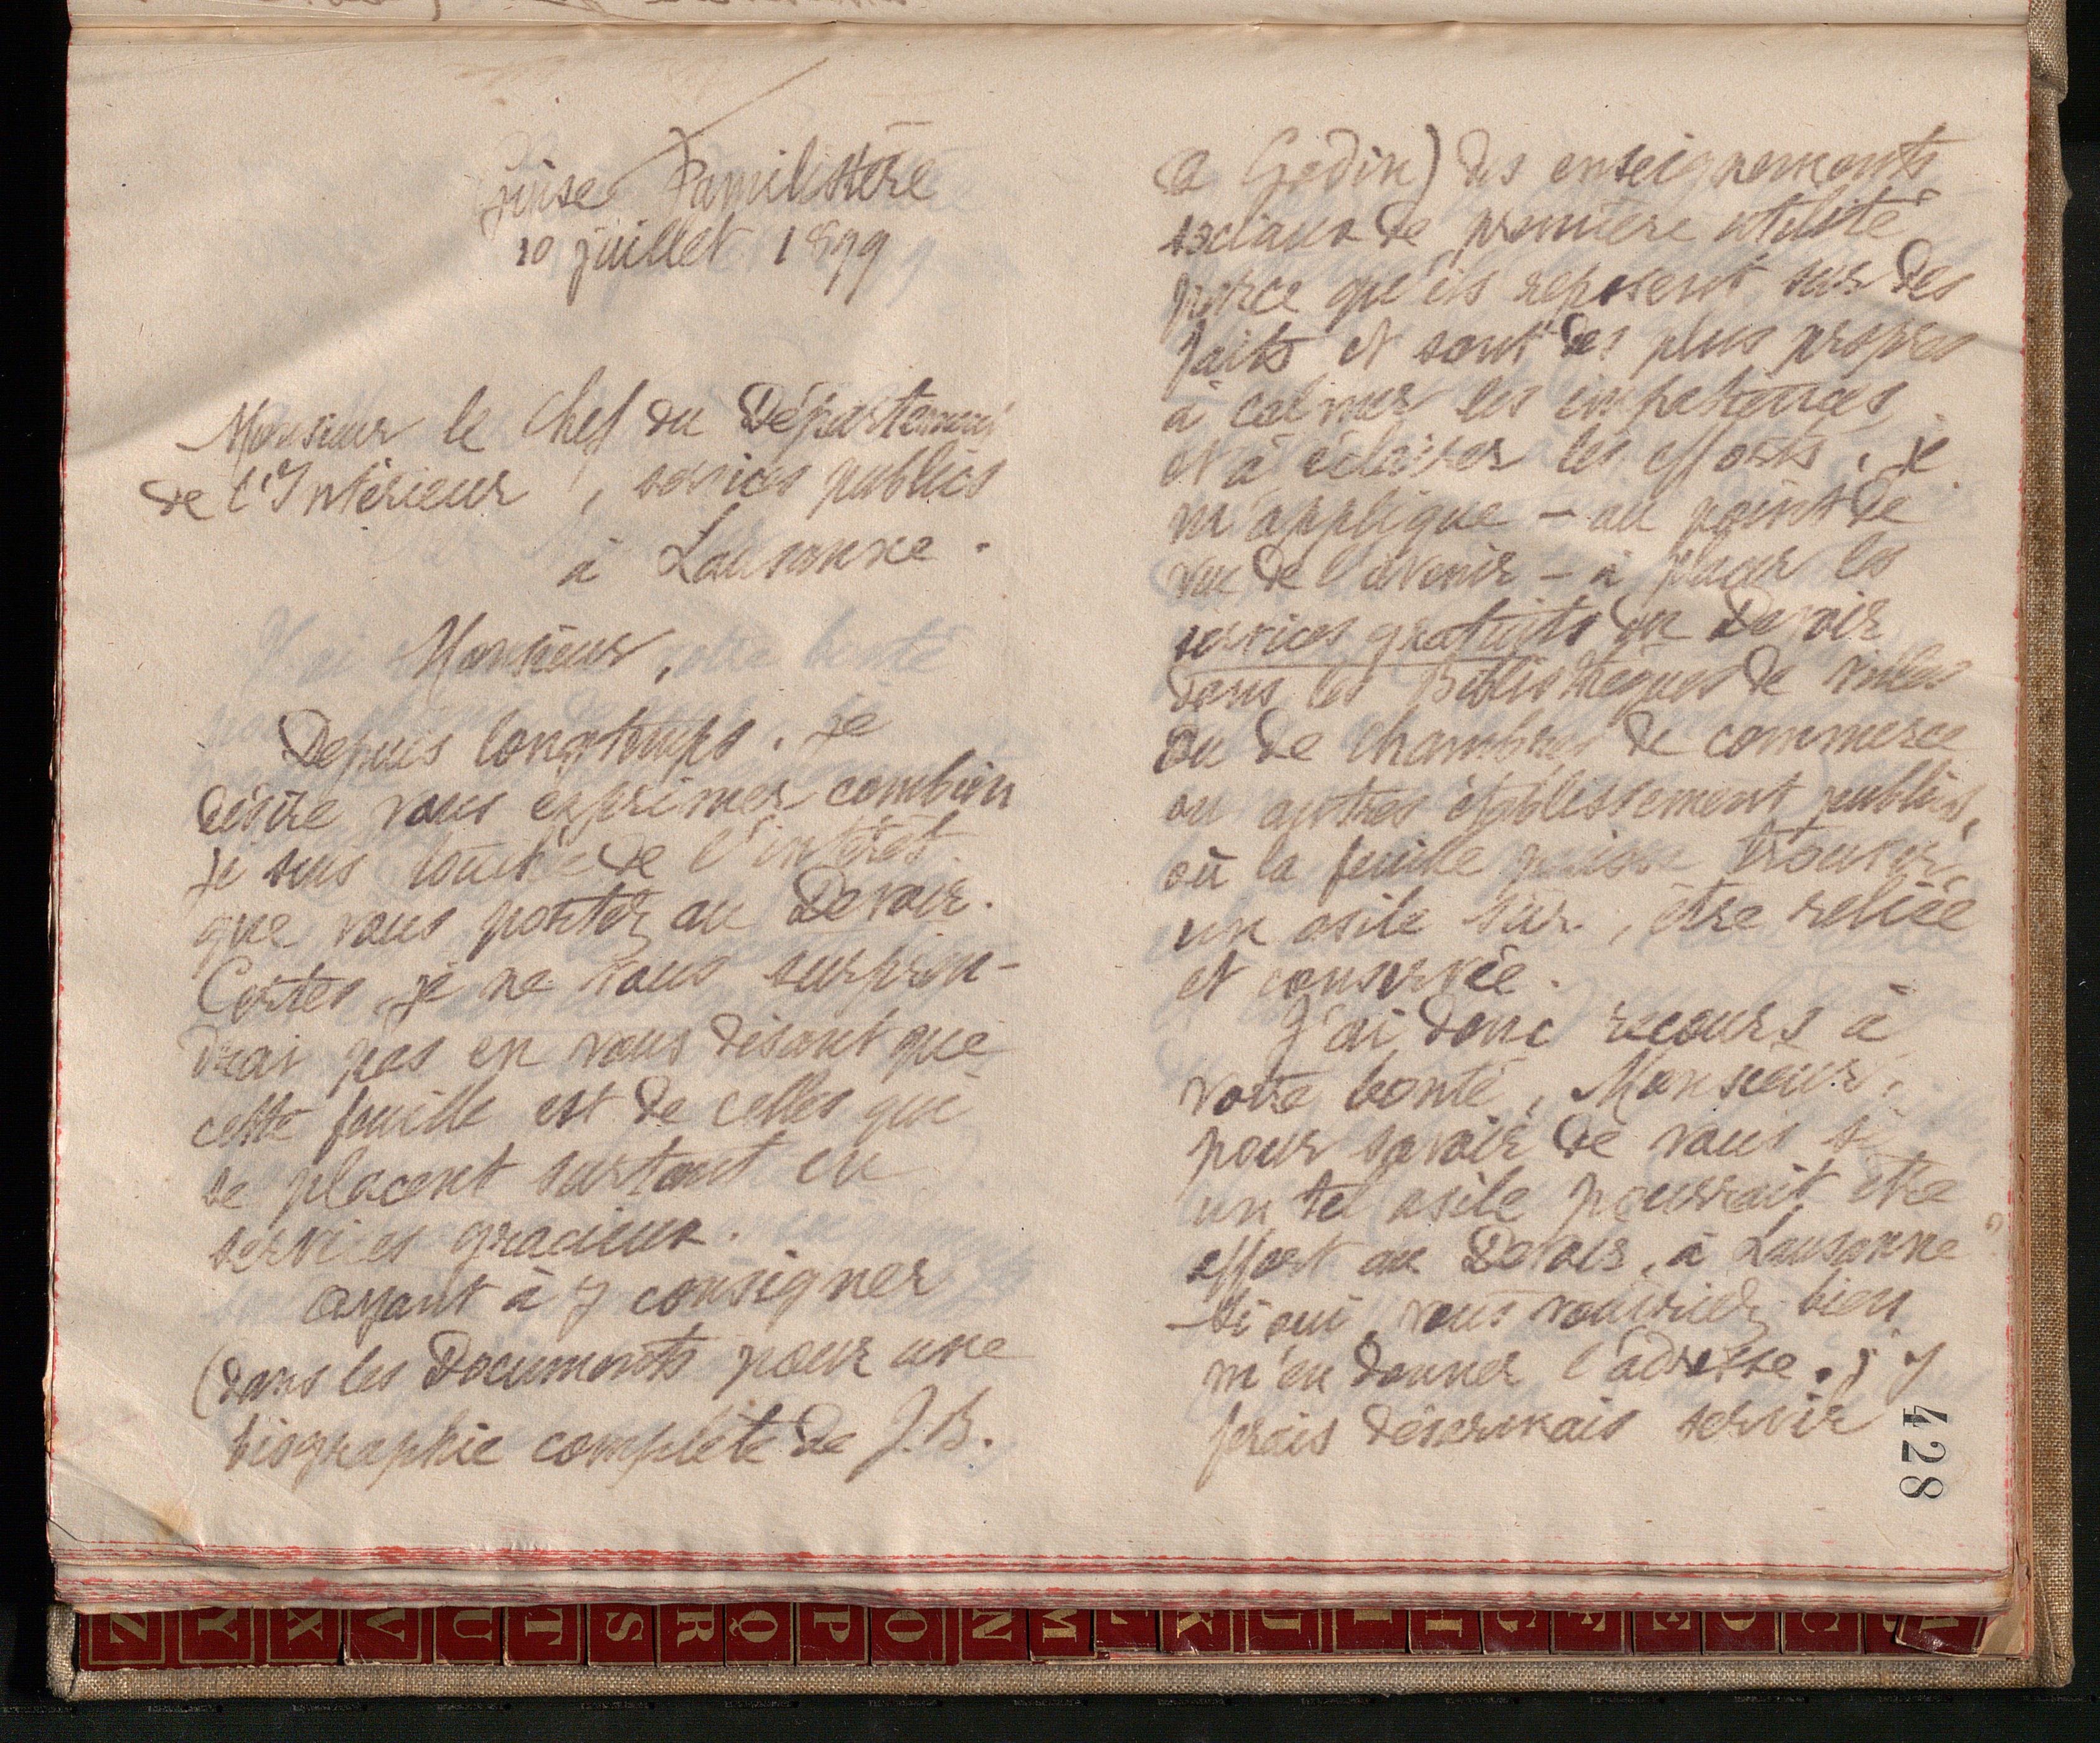 Guise Familistère
10 juillet 1899
Monsieur le Chef du Département
de l'Intérieur, services publics
à Lausanne.
Monsieur,
Depuis longtemps, je
désire vous exprimer combien
je suis touchée de l'intérêt
que vous portez au Devoir.
Certes, je ne vous surpren-
drai pas en vous disant que
cette feuille est de celles qui
se placent surtout en
services gracieux.
Ayant à y consigner
(dans les Documents pour une
biographie complète de J.B.
A Godin) des enseignements
sociaux de première utilité
parce qu'ils reposent sur des
faits et sont des plus propres
à calmer les impatiences,
et à éclairer les efforts, je
m'applique - au point de
vue de l'avenir - à placer les
services gratuits du Devoir
dans les Bibliothèques de villes
ou de chambres de commerce
ou autres établissement publics,
où la feuille puisse trouver
un asile sûr, être reliée
et conservée.
J'ai donc recours à
votre bonté, Monsieur,
pour savoir de vous si
un tel asile pourrait être
offert au Devoir, à Lausanne?
- Si oui, vous voudriez bien
m'en donner l'adresse. j'y
ferais désormais servir
428
Z Y X V U T S R Q P O N M L K J I H G F E D C B A